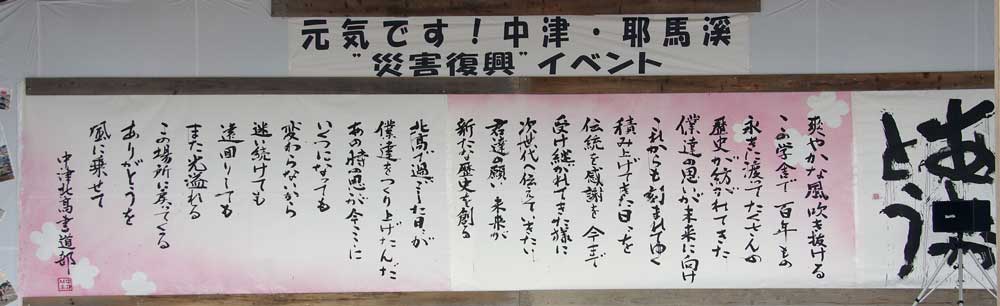 元気です！中津・耶馬溪
"災害復興"イベント
とう
爽やかな風 吹き抜ける
この学舎で 百年もの
永きに渡って たくさんの
歴史が紡がれてきた
僕達の思いが未来に向け
これからも刻まれてゆく
積み上げてきた日々を
伝統を感謝を 今まで
受け継がれてきた様に
次世代へ伝えていきたい
君達の願い 未来が
新たな歴史を創る
北高で過ごした日々が
僕達をつくり上げたんだ
あの時の思いが今ここに
いくつになっても
変わらないから
迷い続けても
遠回りしても
また光溢れる
この場所に戻ってくる
ありがとうを
風に乗せて
中津北高書道部